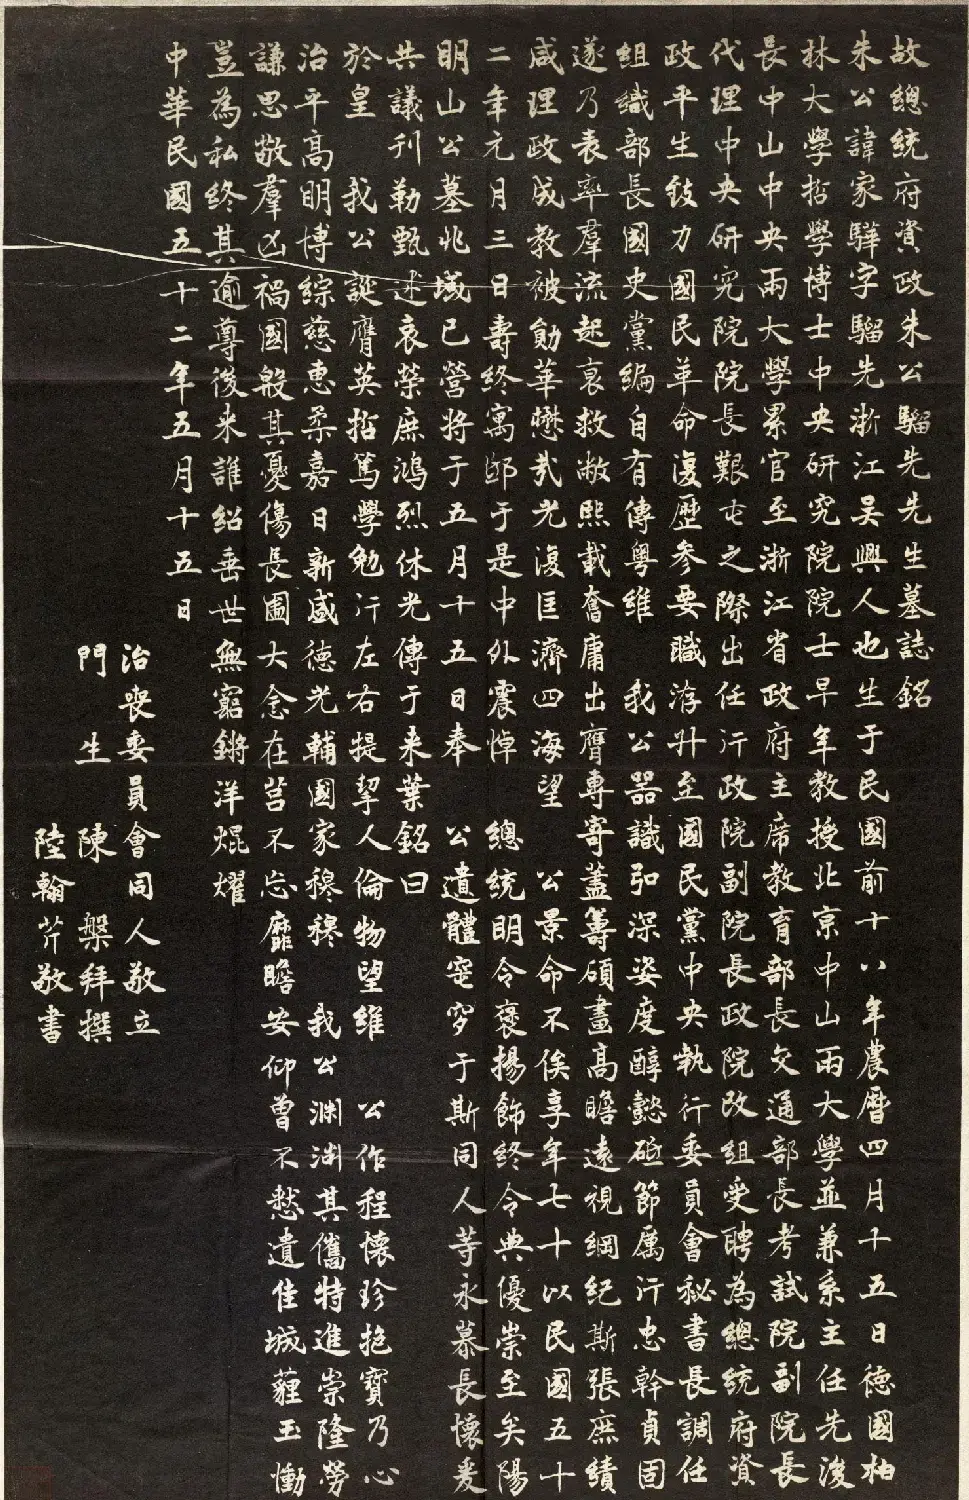 故總統府資政朱公騮先先生墓誌銘
朱公諱家驊字騮先浙江吳興人也生于民國前十八年農曆四月十五日德國柏
林大學哲學博士中央研究院院士早年教授北京中山兩大學並兼系主任先後
長中山中央兩大學累官至浙江省政府主席教育部長交通部長考試院副院長
代理中央研究院院長艱屯之際出任行政院副院長政院改組受聘為總統府資
政平生致力國民革命復歷參要職洊升至國民黨中央執行委員會秘書長調任
組織部長國史黨編自有傳粵維 我公器識弘深姿度醇懿砥節厲行忠幹貞固
遂乃表率羣流起衰救敝熙載奮庸出膺專寄蓋籌碩畫高瞻遠視綱紀斯張庶績
咸理政成教被勛華懋光復匡濟四海望 公景命不俟享年七十以民國五十
二年元月三日壽終寓邸于是中外震悼 總統明令褒揚飾終令典優崇至矣陽
明山公墓兆域已營將于五月十五日奉 公遺體窆穸于斯同人等永慕長懷爰
共議刊勒甄述哀榮庶鴻烈休光傳于来葉銘曰
於皇 我公誕膺英哲篤學勉行左右提挈人倫物望維 公作程懷珍抱寶乃心
治平高明博綜慈惠柔嘉日新盛德光輔國家穆穆 我公淵淵其儁特進崇隆勞
謙思敬羣凶禍國殷其憂傷長圖大念在莒不忘靡瞻安仰曾不憖遺佳城薶玉慟
豈為私終其逾尊後来誰紹垂世無窮鏘洋焜燿
中華民國五十二年五月十五日
治喪委員會同人敬立
門生陳槃拜撰
陸翰芹敬書